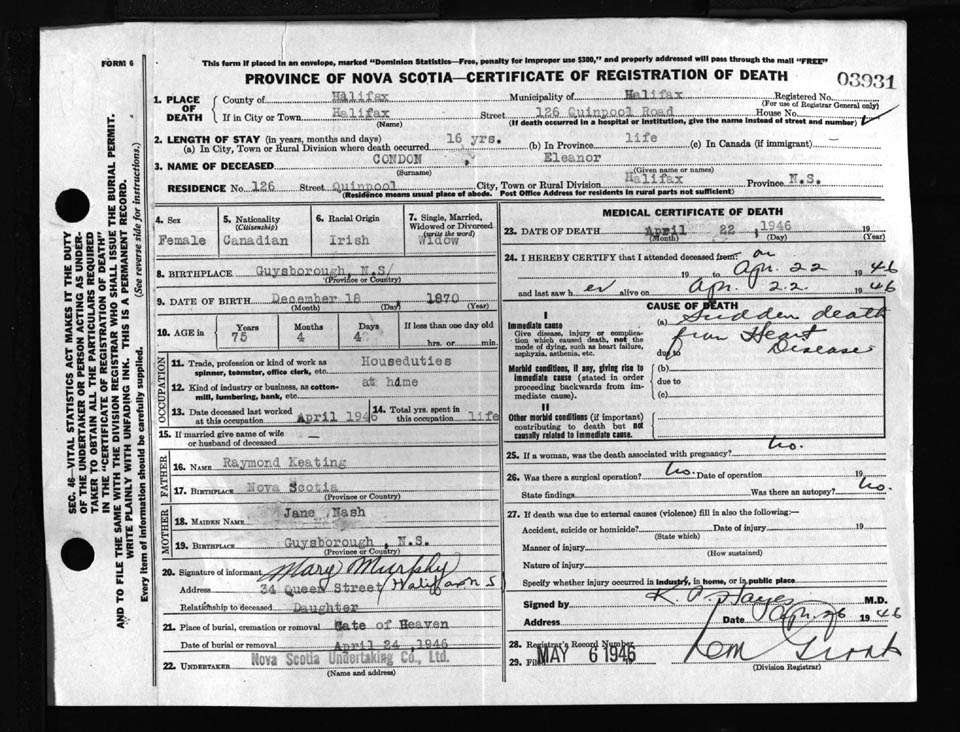 FORM 6
This form if placed in an envelope, marked "Dominion Statistics—Free, penalty for improper use $300," and properly addressed will pass through the mail "FREE"
PROVINCE OF NOVA SCOTIA—CERTIFICATE OF REGISTRATION OF DEATH
03931
1. PLACE OF DEATH
County of Halifax Municipality of Halifax Registered No.
(For use of Registrar General only)
If in City or Town Halifax Street 126 Quinpool Road House No.
(Name) (If death occurred in a hospital or institution, give the name instead of street and number)
2. LENGTH OF STAY (in years, months and days)
(a) In City, Town or Rural Division where death occurred 16 yrs. (b) In Province life (c) In Canada (if immigrant) —
3. NAME OF DECEASED CONDON, Eleanor
(Surname) (Given name or names)
RESIDENCE No. 126 Street Quinpool City, Town or Rural Division Halifax Province N.S.
(Residence means usual place of abode. Post Office Address for residents in rural parts not sufficient)
4. Sex Female
5. Nationality (Citizenship) Canadian
6. Racial Origin Irish
7. Single, Married, Widowed or Divorced (write the word) Widow
8. BIRTHPLACE Guysborough, N.S/
(Province or Country)
9. DATE OF BIRTH December 18 1870
(Month) (Day) (Year)
10. AGE in Years 75 Months 4 Days 4 If less than one day old hrs. or min.
OCCUPATION
11. Trade, profession or kind of work as spinner, teamster, office clerk, etc. Houseduties
12. Kind of industry or business, as cotton-mill, lumbering, bank, etc. at home
13. Date deceased last worked at this occupation April 1946
14. Total yrs. spent in this occupation life
15. If married give name of wife or husband of deceased —
FATHER
16. NAME Raymond Keating
17. BIRTHPLACE Nova Scotia
(Province or Country)
MOTHER
18. MAIDEN NAME Jane Nash
19. BIRTHPLACE Guysborough, N.S.
(Province or Country)
20. Signature of informant Mary Murphy
Address 34 Queen Street Halifax N S
Relationship to deceased Daughter
21. Place of burial, cremation or removal Gate of Heaven
Date of burial or removal April 24, 1946
22. UNDERTAKER Nova Scotia Undertaking Co., Ltd.
(Name and address)
MEDICAL CERTIFICATE OF DEATH
23. DATE OF DEATH April 22, 1946 19
(Month) (Day) (Year)
24. I HEREBY CERTIFY that I attended deceased from: on
19 to Apr. 22 1946
and last saw her alive on Apr. 22 1946
CAUSE OF DEATH
I
Immediate cause
Give disease, injury or complication which caused death, not the mode of dying, such as heart failure, asphyxia, asthenia, etc.
(a) Sudden death
from Heart
due to Disease
Morbid conditions, if any, giving rise to immediate cause (stated in order proceeding backwards from immediate cause).
(b)
due to
(c)
II
Other morbid conditions (if important) contributing to death but not causally related to immediate cause.
25. If a woman, was the death associated with pregnancy? No.
26. Was there a surgical operation? No. Date of operation
State findings Was there an autopsy? No.
27. If death was due to external causes (violence) fill in also the following:—
Accident, suicide or homicide? Date of injury 19
(State which)
Manner of injury
(How sustained)
Nature of injury
Specify whether injury occurred in industry, in home, or in public place
Signed by M.D.
Address Date Apr. 26 1946
28. Registrar's Record Number
29. Filed MAY 6 1946
(Division Registrar)
SEC. 46—VITAL STATISTICS ACT MAKES IT THE DUTY
OF THE UNDERTAKER OR PERSON ACTING AS UNDER-
TAKER TO OBTAIN ALL THE PARTICULARS REQUIRED
IN THE "CERTIFICATE OF REGISTRATION OF DEATH"
AND TO FILE THE SAME WITH THE DIVISION REGISTRAR WHO SHALL ISSUE THE BURIAL PERMIT.
WRITE PLAINLY WITH UNFADING INK. THIS IS A PERMANENT RECORD.
Every item of information should be carefully supplied. (See reverse side for instructions.)